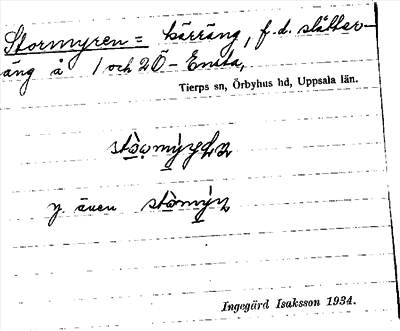 Stormyren = kärräng, f.d. slåtter-
äng å 1 och 2 Ö-Ensta,
Tierps sn, Örbyhus hd, Uppsala län.
y. även
Ingegärd Isaksson 1934.